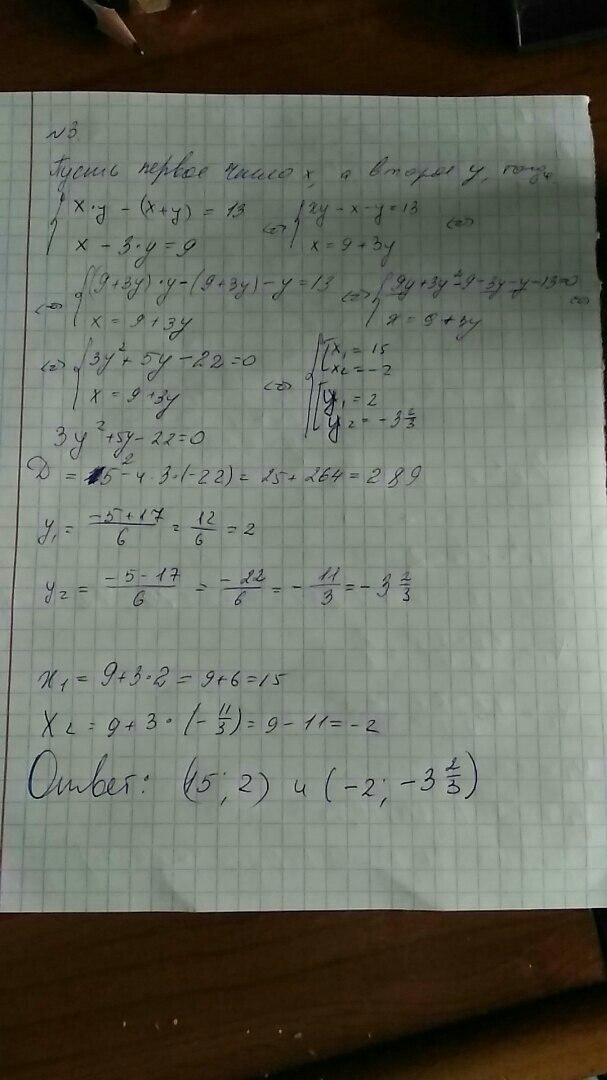 №3.
Пусть первое число x, а второе y, тогда
{ x·y - (x+y) = 13
x - 3·y = 9 <=> { xy - x - y = 13
x = 9 + 3y <=>
<=> { (9+3y)·y - (9+3y) - y = 13
x = 9 + 3y <=> { 9y + 3y² - 9 - 3y - y - 13 = 0
x = 9 + 3y <=>
<=> { 3y² + 5y - 22 = 0
x = 9 + 3y <=> { [ x₁ = 15
x₂ = -2
[ y₁ = 2
y₂ = -3 2/3
3y² + 5y - 22 = 0
D = 5² - 4·3·(-22) = 25 + 264 = 289
y₁ = (-5+17)/6 = 12/6 = 2
y₂ = (-5-17)/6 = -22/6 = -11/3 = -3 2/3
x₁ = 9+3·2 = 9+6 = 15
x₂ = 9 + 3·(-11/3) = 9 - 11 = -2
Ответ: (15; 2) и (-2; -3 2/3)